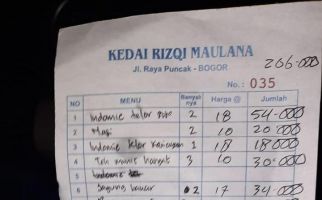 KEDAI RIZQI MAULANA
Jl. Raya Puncak - BOGOR
266.000
No. : 035
NO MENU Banyak nya Harga @ Jumlah
1 Indomie telor 2 18 54.000
2 Nasi 2 10 20.000
3 Indomie telor 1 18 18000
4 Teh manis hangat 3 10 30.000
5 Indomie
6 Jagung bakar 2 17 34.000